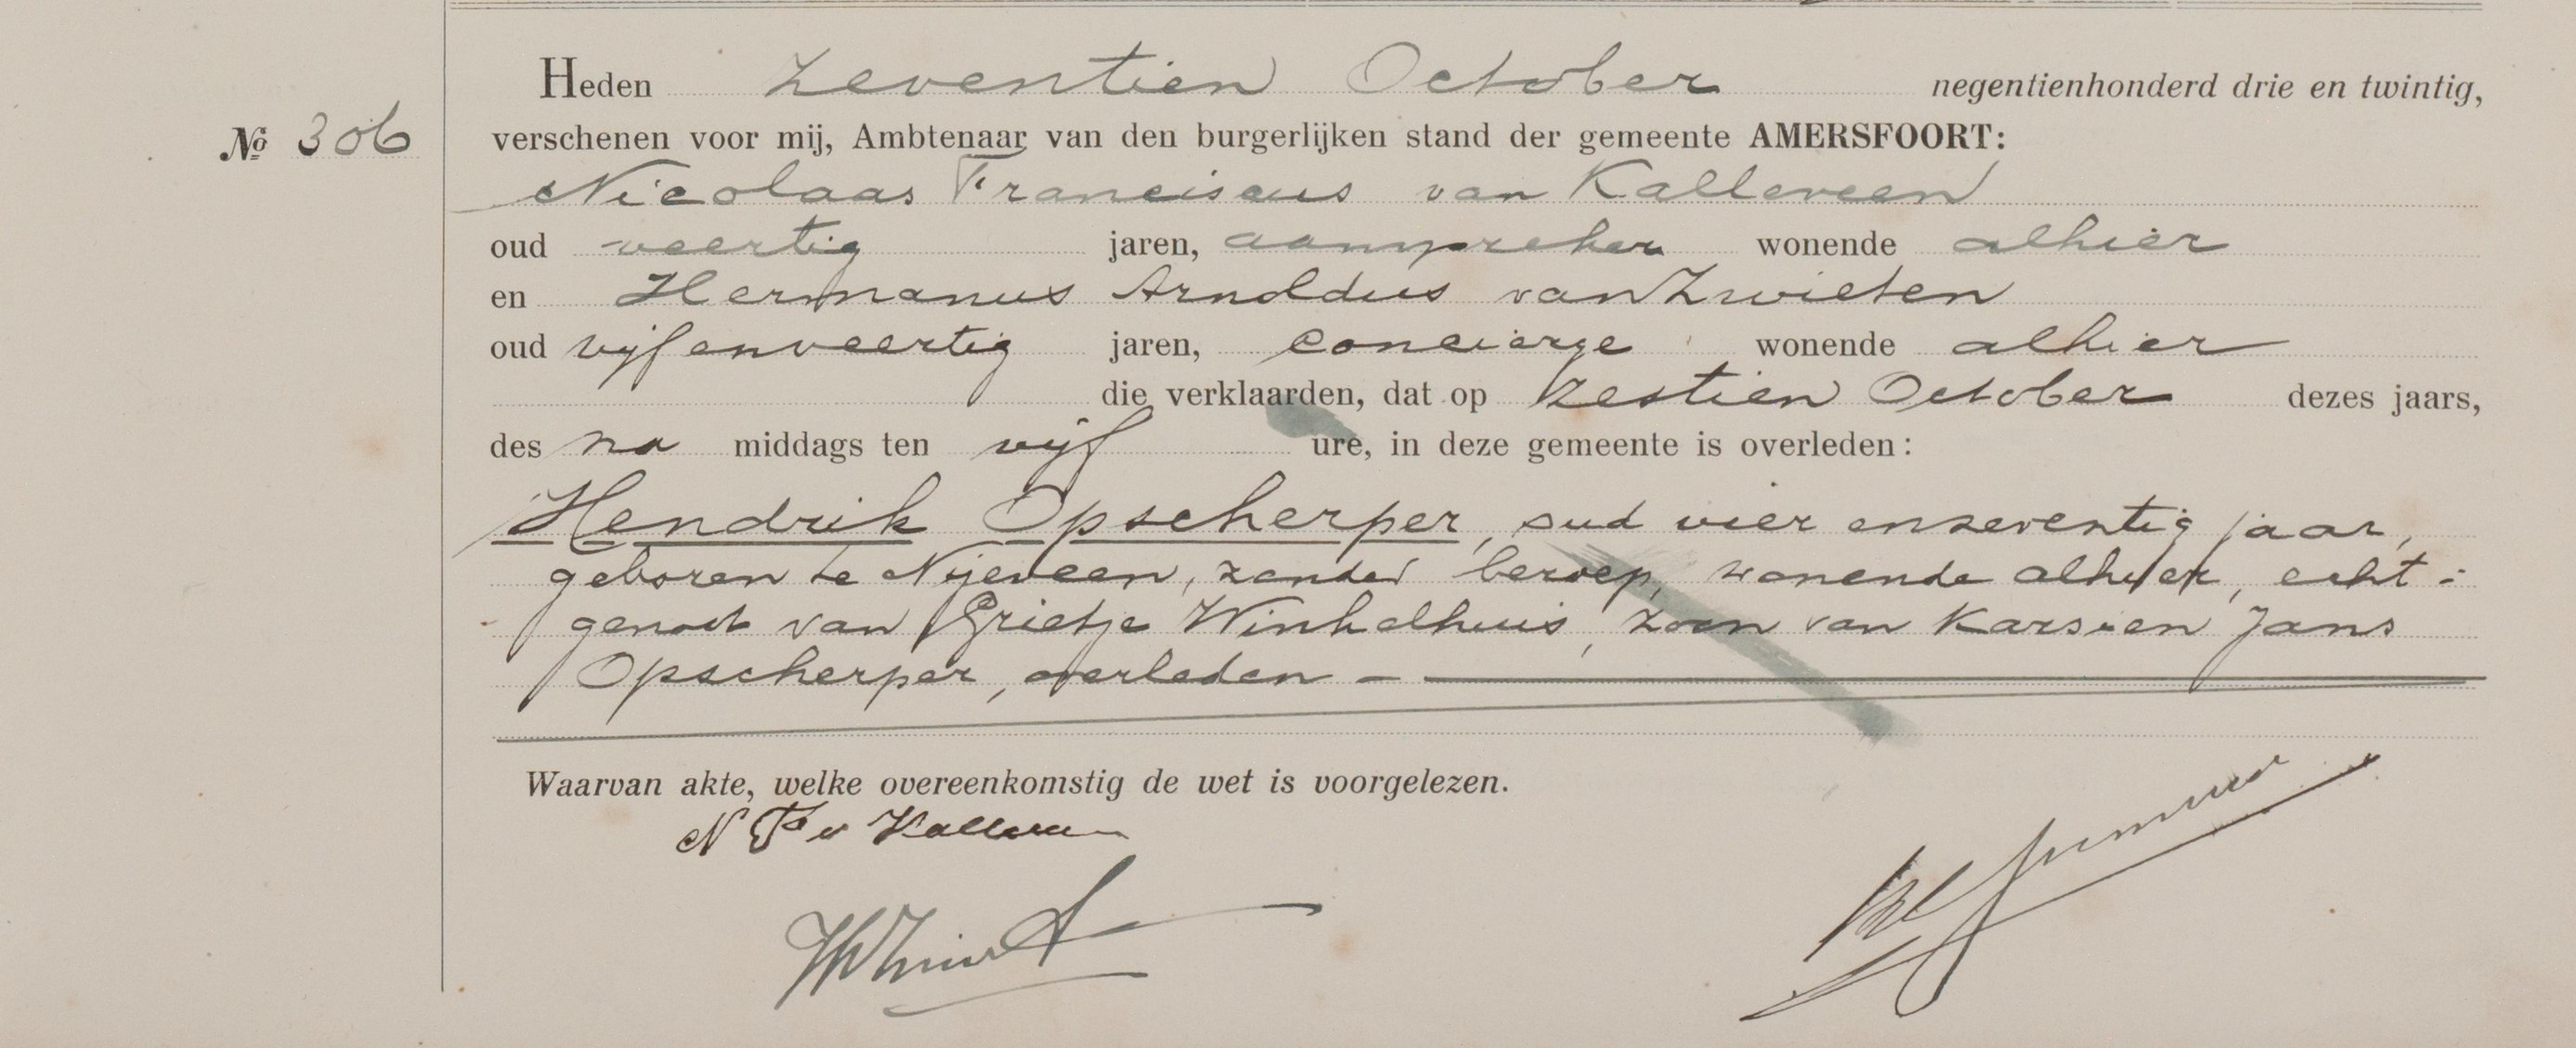 Heden zeventien October negentienhonderd drie en twintig,
No 306 verschenen voor mij, Ambtenaar van den burgerlijken stand der gemeente AMERSFOORT:
Nicolaas Franciscus van Kalleveen
oud veertig jaren, aanspreker wonende alhier
en Hermanus Arnoldus van Zwieten
oud vijfenveertig jaren, concierge wonende alhier
die verklaarden, dat op zestien October dezes jaars,
des na middags ten vijf ure, in deze gemeente is overleden:
Hendrik Opscherper, oud vier enzeventig jaar,
geboren te Nijeveen, zonder beroep, wonende alhier, echt-
genoot van Grietje Winkelhuis, zoon van Karsien Jans
Opscherper, overleden
Waarvan akte, welke overeenkomstig de wet is voorgelezen.
N F v Kalleveen